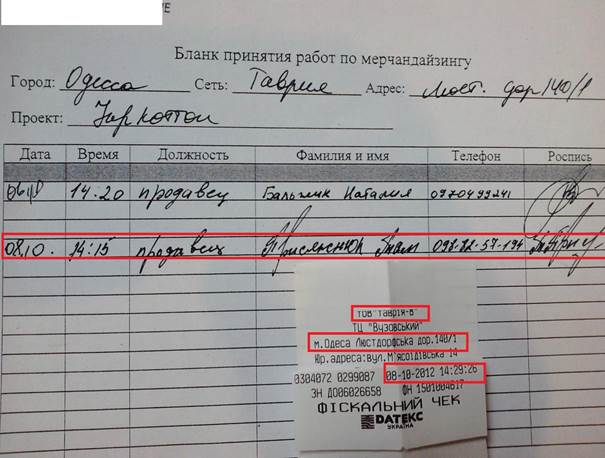 Бланк принятия работ по мерчандайзингу
Город: Одесса Сеть: Таврия Адрес: Люст. дор 140/1
Проект:
Дата Время Должность Фамилия и имя Телефон Роспись
14.20 продавец Наталия 0970499241
08.10. 14:15 продавец
ТОВ "Таврія-В"
ТЦ "Вузовський"
м.Одеса Люстдорфська дор.140/1
Юр.адреса:вул.М'ясоїдівська 14
0304072 0299087 08-10-2012 14:29:26
ЗН ДО06026658 ФН 1501004617
ФІСКАЛЬНИЙ ЧЕК
DATEKC
УКРАЇНА